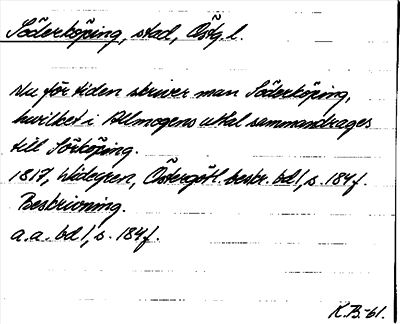 Söderköping, stad, Östg. l.
Nu för tiden skriver man Söderköping,
hwilket i Allmogens uttal sammandrages
till Sörköping.
1817, Widegren, Östergötl. beskr. bd 1, s. 184 f.
Beskrivning.
a.a. bd 1, s. 184 f.
K.B.-61.